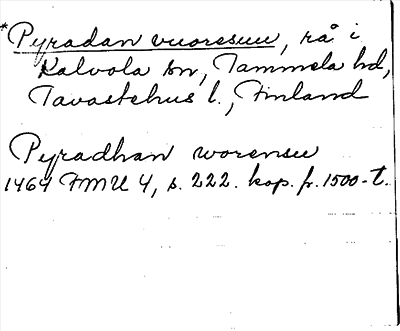 *Pyradan vuoresuu, rå i
Kalvola sn, Tammela hd,
Tavastehus l., Finland
Pyradhan worensuu
1464 FMU 4, s. 222. kop. fr. 1500-t.